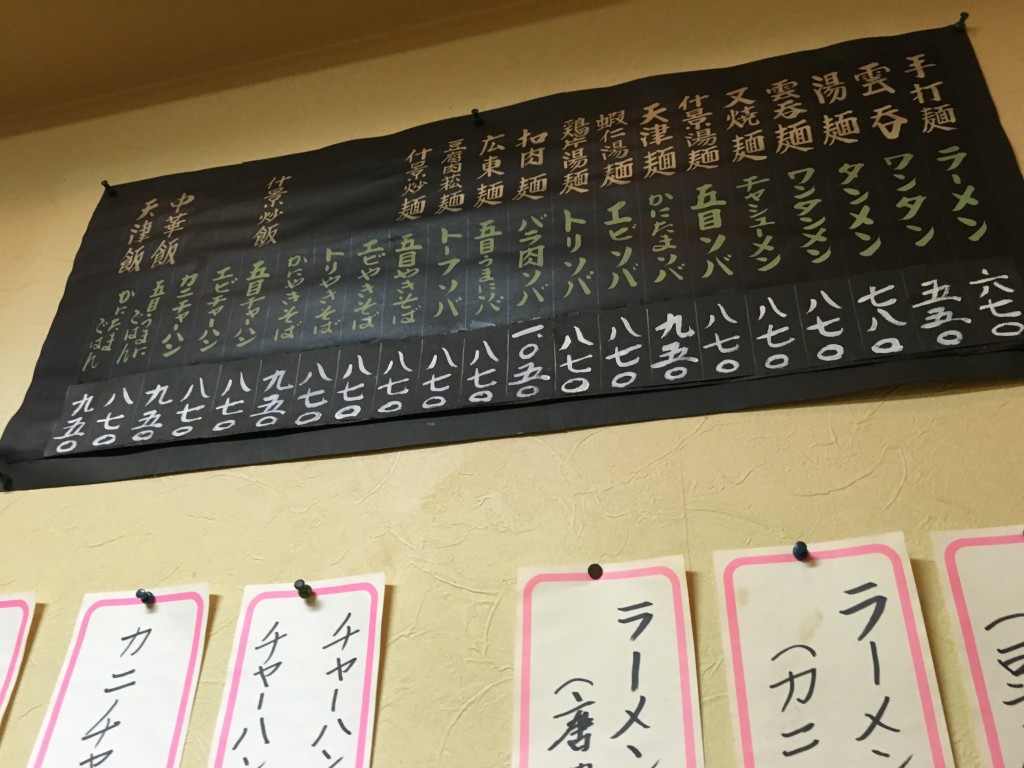 手打麺 ラーメン 六七〇
雲呑 ワンタン 五五〇
湯麺 タンメン 七八〇
雲呑麺 ワンタンメン 八七〇
叉焼麺 チャシューメン 八七〇
什景湯麺 五目ソバ 八七〇
天津麺 かにたまソバ 九五〇
蝦仁湯麺 エビソバ 八七〇
湯麺 トリソバ 八七〇
扣肉麺 バラ肉ソバ 一、〇五〇
広東麺 五目うまにソバ 八七〇
豆腐肉松麺 トーフソバ 八七〇
什景炒麺 五目やきそば 八七〇
エビやきそば 八七〇
トリやきそば 八七〇
かにやきそば 九五〇
什景炒飯 五目チャーハン 八七〇
エビチャーハン 八七〇
カニチャーハン 九五〇
中華飯 五目うまにごはん 八七〇
天津飯 かにたまごはん 九五〇
ラーメン
(カニ
ラーメン
(唐
チャーハン
チャーハン
カニチャ